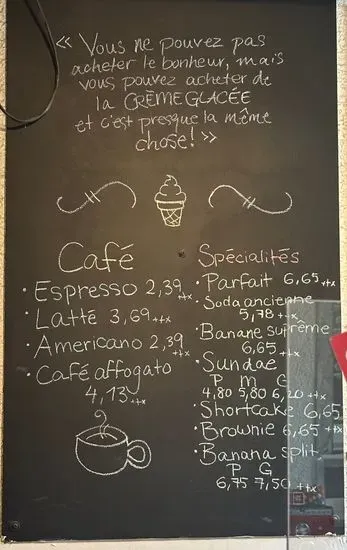 « Vous ne pouvez pas
acheter le bonheur, mais
vous pouvez acheter de
la CRÈME GLACÉE
et c'est presque la même
chose! »
Café
· Espresso 2,39+tx
· Latté 3,69+tx
· Americano 2,39+tx
· Café affogato
4,13+tx
Spécialités
· Parfait 6,65+tx
· Soda ancienne
5,78+tx
· Banane suprême
6,65+tx
· Sundae
P M G
4,80 5,80 6,20+tx
· Shortcake 6,65
· Brownie 6,65+tx
· Banana split
P G
6,75 7,50+tx